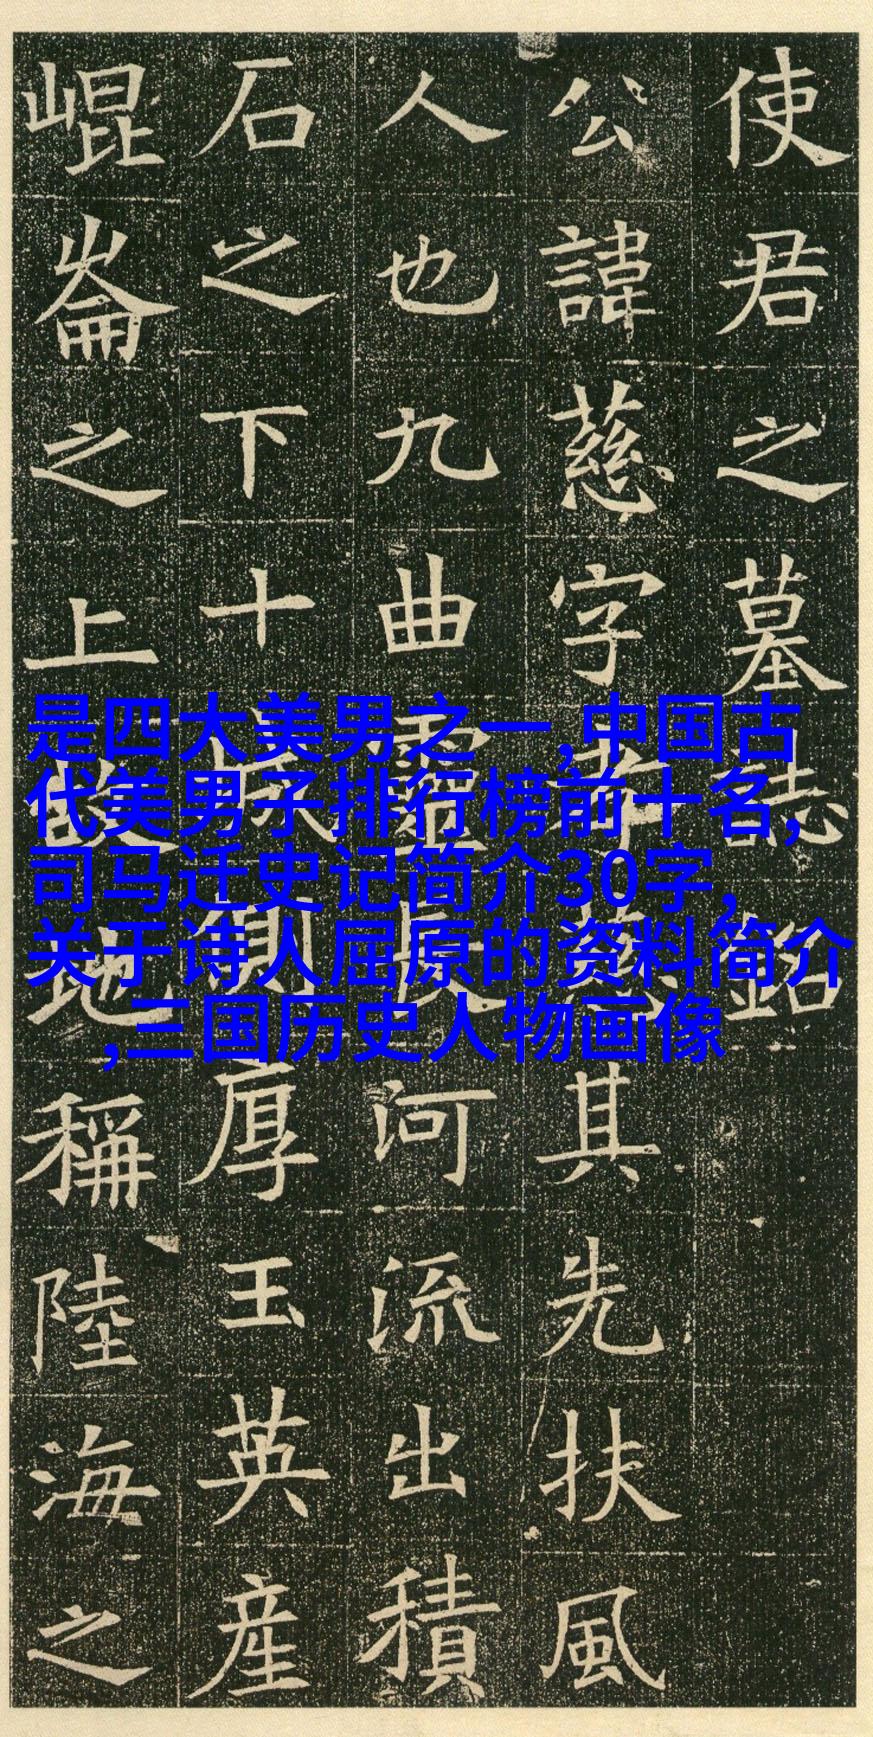 使君之墓誌銘
公諱慈字孝慈其先扶風
人也九曲靈長河流出積
石之下十城厚玉英産
崐崙之上地稱陸海之
是四大美男之一,中国古
代美男子排行榜前十名,
司马迁史记简介30字,
关于诗人屈原的资料简介
,三国历史人物画像